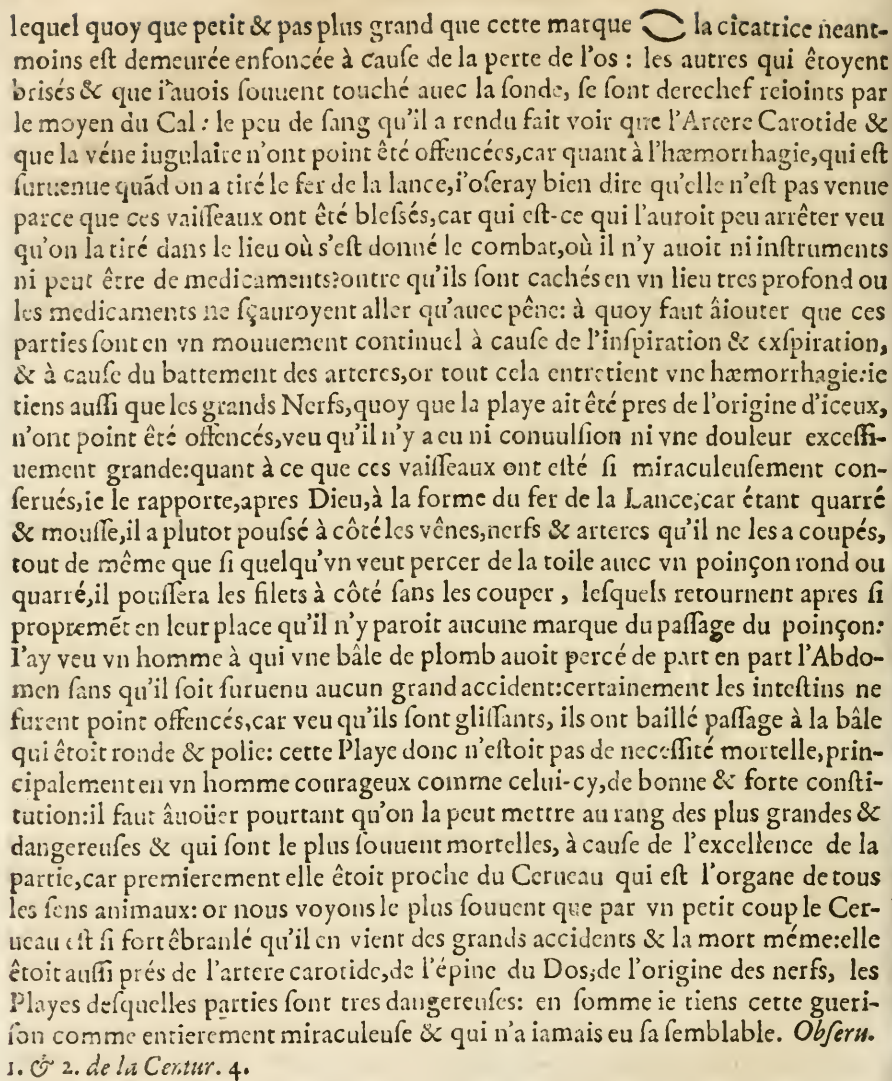 lequel quoy que petit & pas plus grand que cette marque la cicatrice neant-
moins eſt demeurée enfoncée à cauſe de la perte de l'os : les autres qui êtoyent
brisés & que i'auois ſouuent touché auec la ſonde, ſe ſont derechef reioints par
le moyen du Cal : le peu de ſang qu'il a rendu fait voir que l'Artere Carotide &
que la véne iugulaire n'ont point été offencées,car quant à l'hæmorrhagie,qui eſt
ſuruenue quãd on a tiré le fer de la lance,i'oſeray bien dire qu'elle n'eſt pas venue
parce que ces vaiſſeaux ont êté bleſsés,car qui eſt-ce qui l'auroit peu arrêter veu
qu'on la tiré dans le lieu où s'eſt donné le combat,où il n'y auoit ni inſtruments
ni peut être de medicaments?outre qu'ils ſont cachés en vn lieu tres profond ou
les medicaments ne ſçauroyent aller qu'auec pêne: à quoy faut âiouter que ces
parties ſont en vn mouuement continuel à cauſe de l'inſpiration & exſpiration,
& à cauſe du battement des arteres,or tout cela entretient vne hæmorrhagie:ie
tiens auſſi que les grands Nerfs,quoy que la playe ait êté pres de l'origine d'iceux,
n'ont point êté offencés,veu qu'il n'y a eu ni conuulſion ni vne douleur exceſſi-
uement grande:quant à ce que ces vaiſſeaux ont eſté ſi miraculeuſement con-
ſerués,ie le rapporte,apres Dieu,à la forme du fer de la Lance;car étant quarré
& mouſſe,il a plutot pouſsé à côté les vênes,nerfs & arteres qu'il ne les a coupés,
tout de même que ſi quelqu'vn veut percer de la toile auec vn poinçon rond ou
quarré,il pouſſera les filets à côté ſans les couper , leſquels retournent apres ſi
propremẽt en leur place qu'il n'y paroit aucune marque du paſſage du poinçon:
I'ay veu vn homme à qui vne bâle de plomb auoit percé de part en part l'Abdo-
men ſans qu'il ſoit ſuruenu aucun grand accident:certainement les inteſtins ne
furent point offencés,car veu qu'ils ſont gliſſants, ils ont baillé paſſage à la bâle
qui êtoit ronde & polie: cette Playe donc n'eſtoit pas de neceſſité mortelle,prin-
cipalement en vn homme courageux comme celui-cy,de bonne & forte conſti-
tution:il faut âuoüer pourtant qu'on la peut mettre au rang des plus grandes &
dangereuſes & qui ſont le plus ſouuent mortelles, à cauſe de l'excellence de la
partie,car premierement elle êtoit proche du Cerueau qui eſt l'organe de tous
les ſens animaux: or nous voyons le plus ſouuent que par vn petit coup le Cer-
ueau eſt ſi fort êbranlé qu'il en vient des grands accidents & la mort méme:elle
êtoit auſſi prés de l'artere carotide,de l'épine du Dos,de l'origine des nerfs, les
Playes deſquelles parties ſont tres dangereuſes: en ſomme ie tiens cette gueri-
ſon comme entierement miraculeuſe & qui n'a iamais eu ſa ſemblable. Obſeru.
1. & 2. de la Centur. 4.